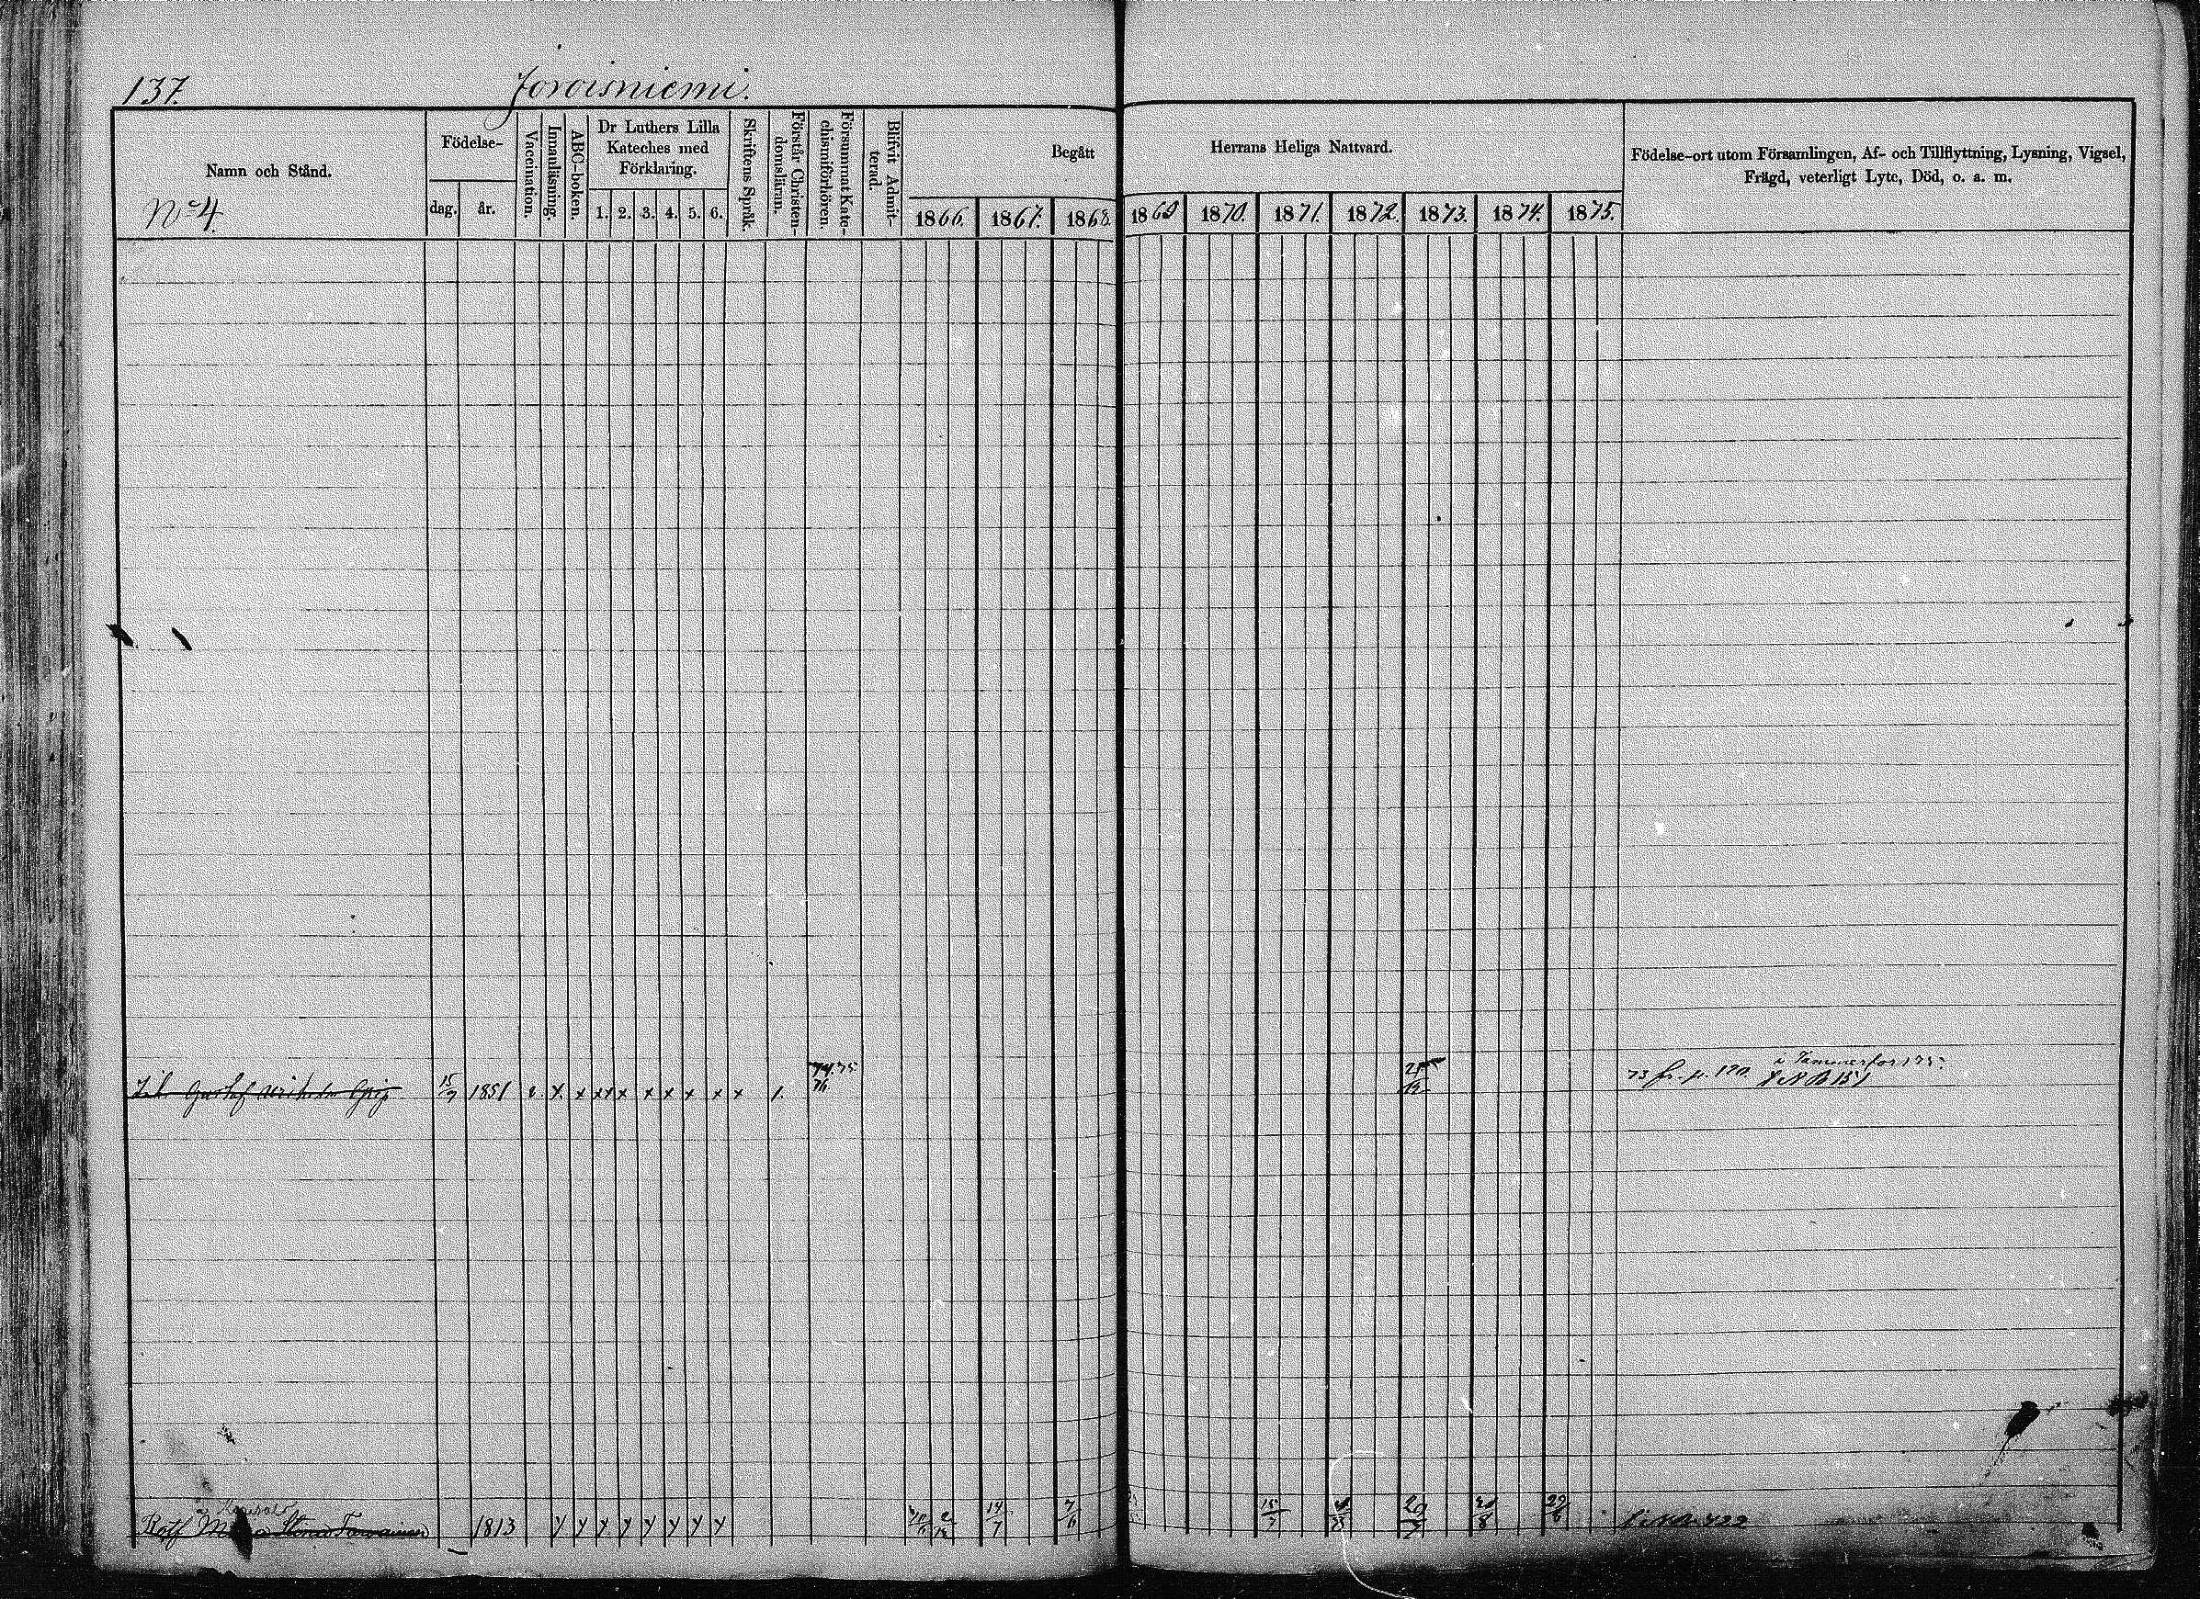 137. Joroisniemi.
Namn och Stånd.
No 4.
Födelse-
dag. år.
Vaccination.
Innanläsning.
ABC-boken.
Dr Luthers Lilla
Kateches med
Förklaring.
1. 2. 3. 4. 5. 6.
Skriftens Språk.
Förstår Christen-
domsläran.
Försummat Kate-
chismiförhören.
Blifvit Admit-
terad.
Begått Herrans Heliga Nattvard.
1866. 1867. 1868. 1869 1870. 1871. 1872. 1873. 1874. 1875.
Födelse-ort utom Församlingen, Af- och Tillflyttning, Lysning, Vigsel,
Frägd, veterligt Lyte, Död, o. a. m.
Gustaf 15/7 1851 v. x. x x x x x x x x x 1. 74.75 76 73 fr. p. 170
1813 x x x x x x x x 14/7 7/6 15/7 29/6